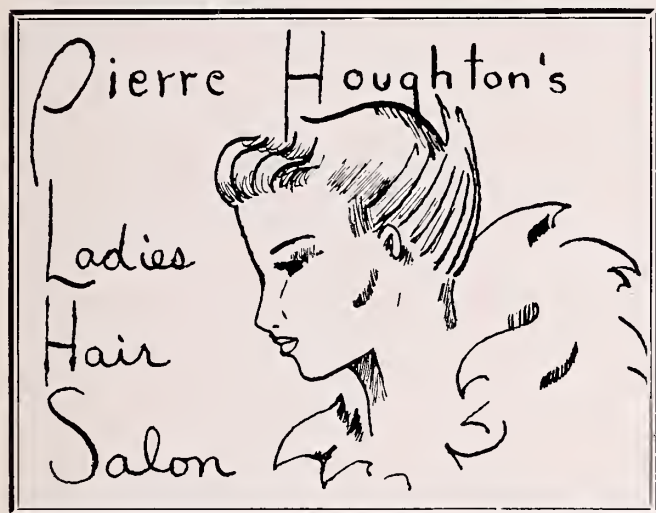 Pierre Houghton's
Ladies
Hair
Salon